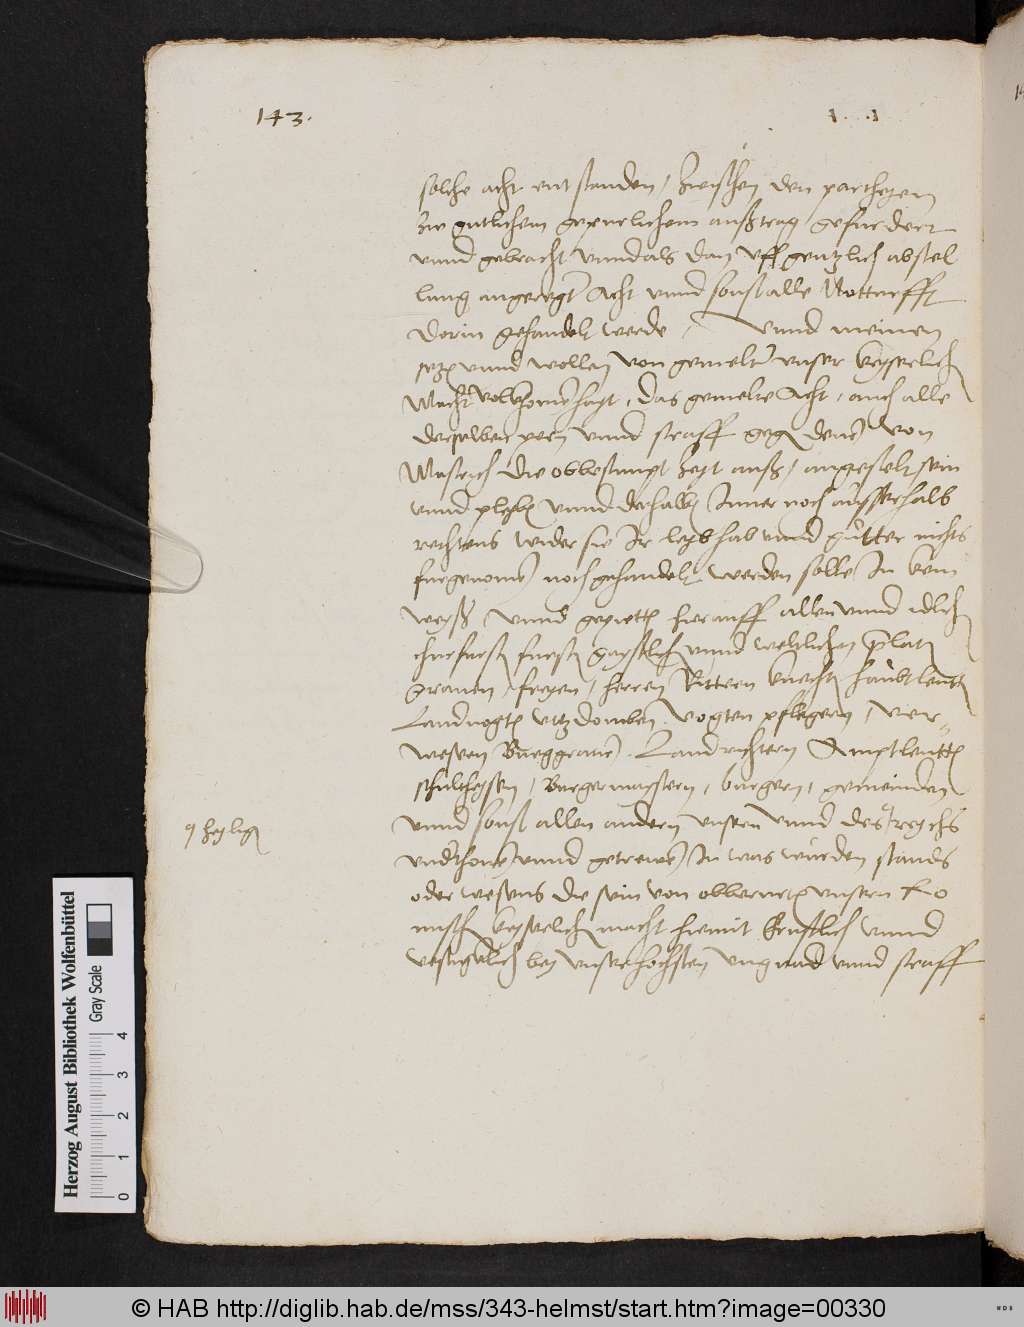 143.
solche acht entstanden / zwischen den partheyen
zw gutlichem gepurlichem außtrag gefurdert
unnd gebracht unnd als dan uff gentzlich abstel
lung angeregt Acht unnd sonst alle Notturfft
dorin gehandelt werde / unnd meinen
setz unnd wollen von gemelter unser keyserlich
Macht volkhomenhayt, das gemelte Acht, auch alle
derselben peen unnd straff gegen denen von
die obbestimpt zeyt auß / angestelt sein
unnd pleyben unnd derhalben Inner noch ausserhalb
rechtens wider sie Ir leyb hab unnd gutter nichts
furgenomen noch gehandelt werden solle In kein
weyß unnd gepietten hierauff allen unnd idlichen
churfursten fursten gaystlichen unnd weltlichen prelaten
Graven, freyen, herren Rittern knechten haubtleuten
Landvogten vitzdomben vogten pflegern, ver-
wesern Burggraven Landrichtern Amptleutten
schultheysen, Burgermaystern, burgern, gemeinden
unnd sonst allen andern unsern unnd des reychs
underthonen unnd getrewen In was wurden stands
oder wesens die sein von obberurter unsern Ro
misch keyserlicher macht hiemit Ernstlich unnd
vestiglich bey unser hochsten ungnad unnd straff
heylig
Herzog August Bibliothek Wolfenbüttel
Gray Scale
0 1 2 3 4
© HAB http://diglib.hab.de/mss/343-helmst/start.htm?image=00330